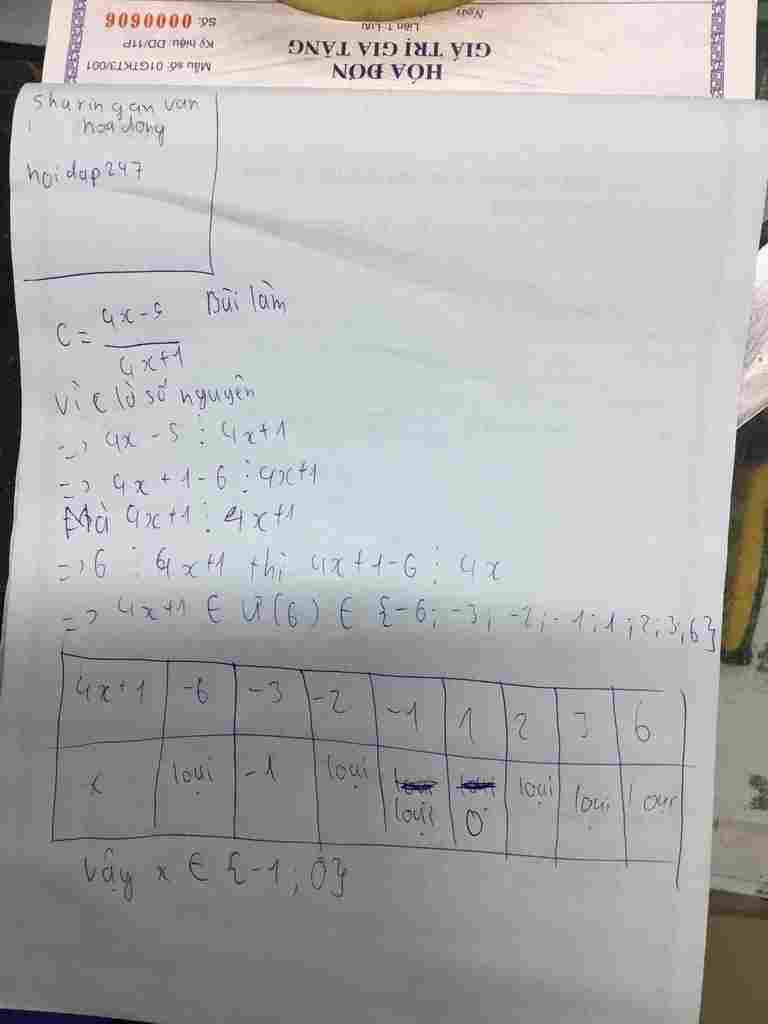 Số: 0000606
Ký hiệu: DD/11P
Mẫu số: 01GTKT3/001
GIÁ TRỊ GIA TĂNG
HÓA ĐƠN
sharingan van
hoadong
hoidap247
Bài làm
C = 4x-5 / 4x+1
Vì C là số nguyên
=> 4x - 5 ⋮ 4x+1
=> 4x + 1 - 6 ⋮ 4x+1
Mà 4x+1 ⋮ 4x+1
=> 6 ⋮ 4x+1 thì 4x+1-6 ⋮ 4x
=> 4x+1 ∈ Ư(6) ∈ {-6; -3; -2; -1; 1; 2; 3; 6}
4x+1 -6 -3 -2 -1 1 2 3 6
x loại -1 loại loại 0 loại loại loại
Vậy x ∈ {-1; 0}